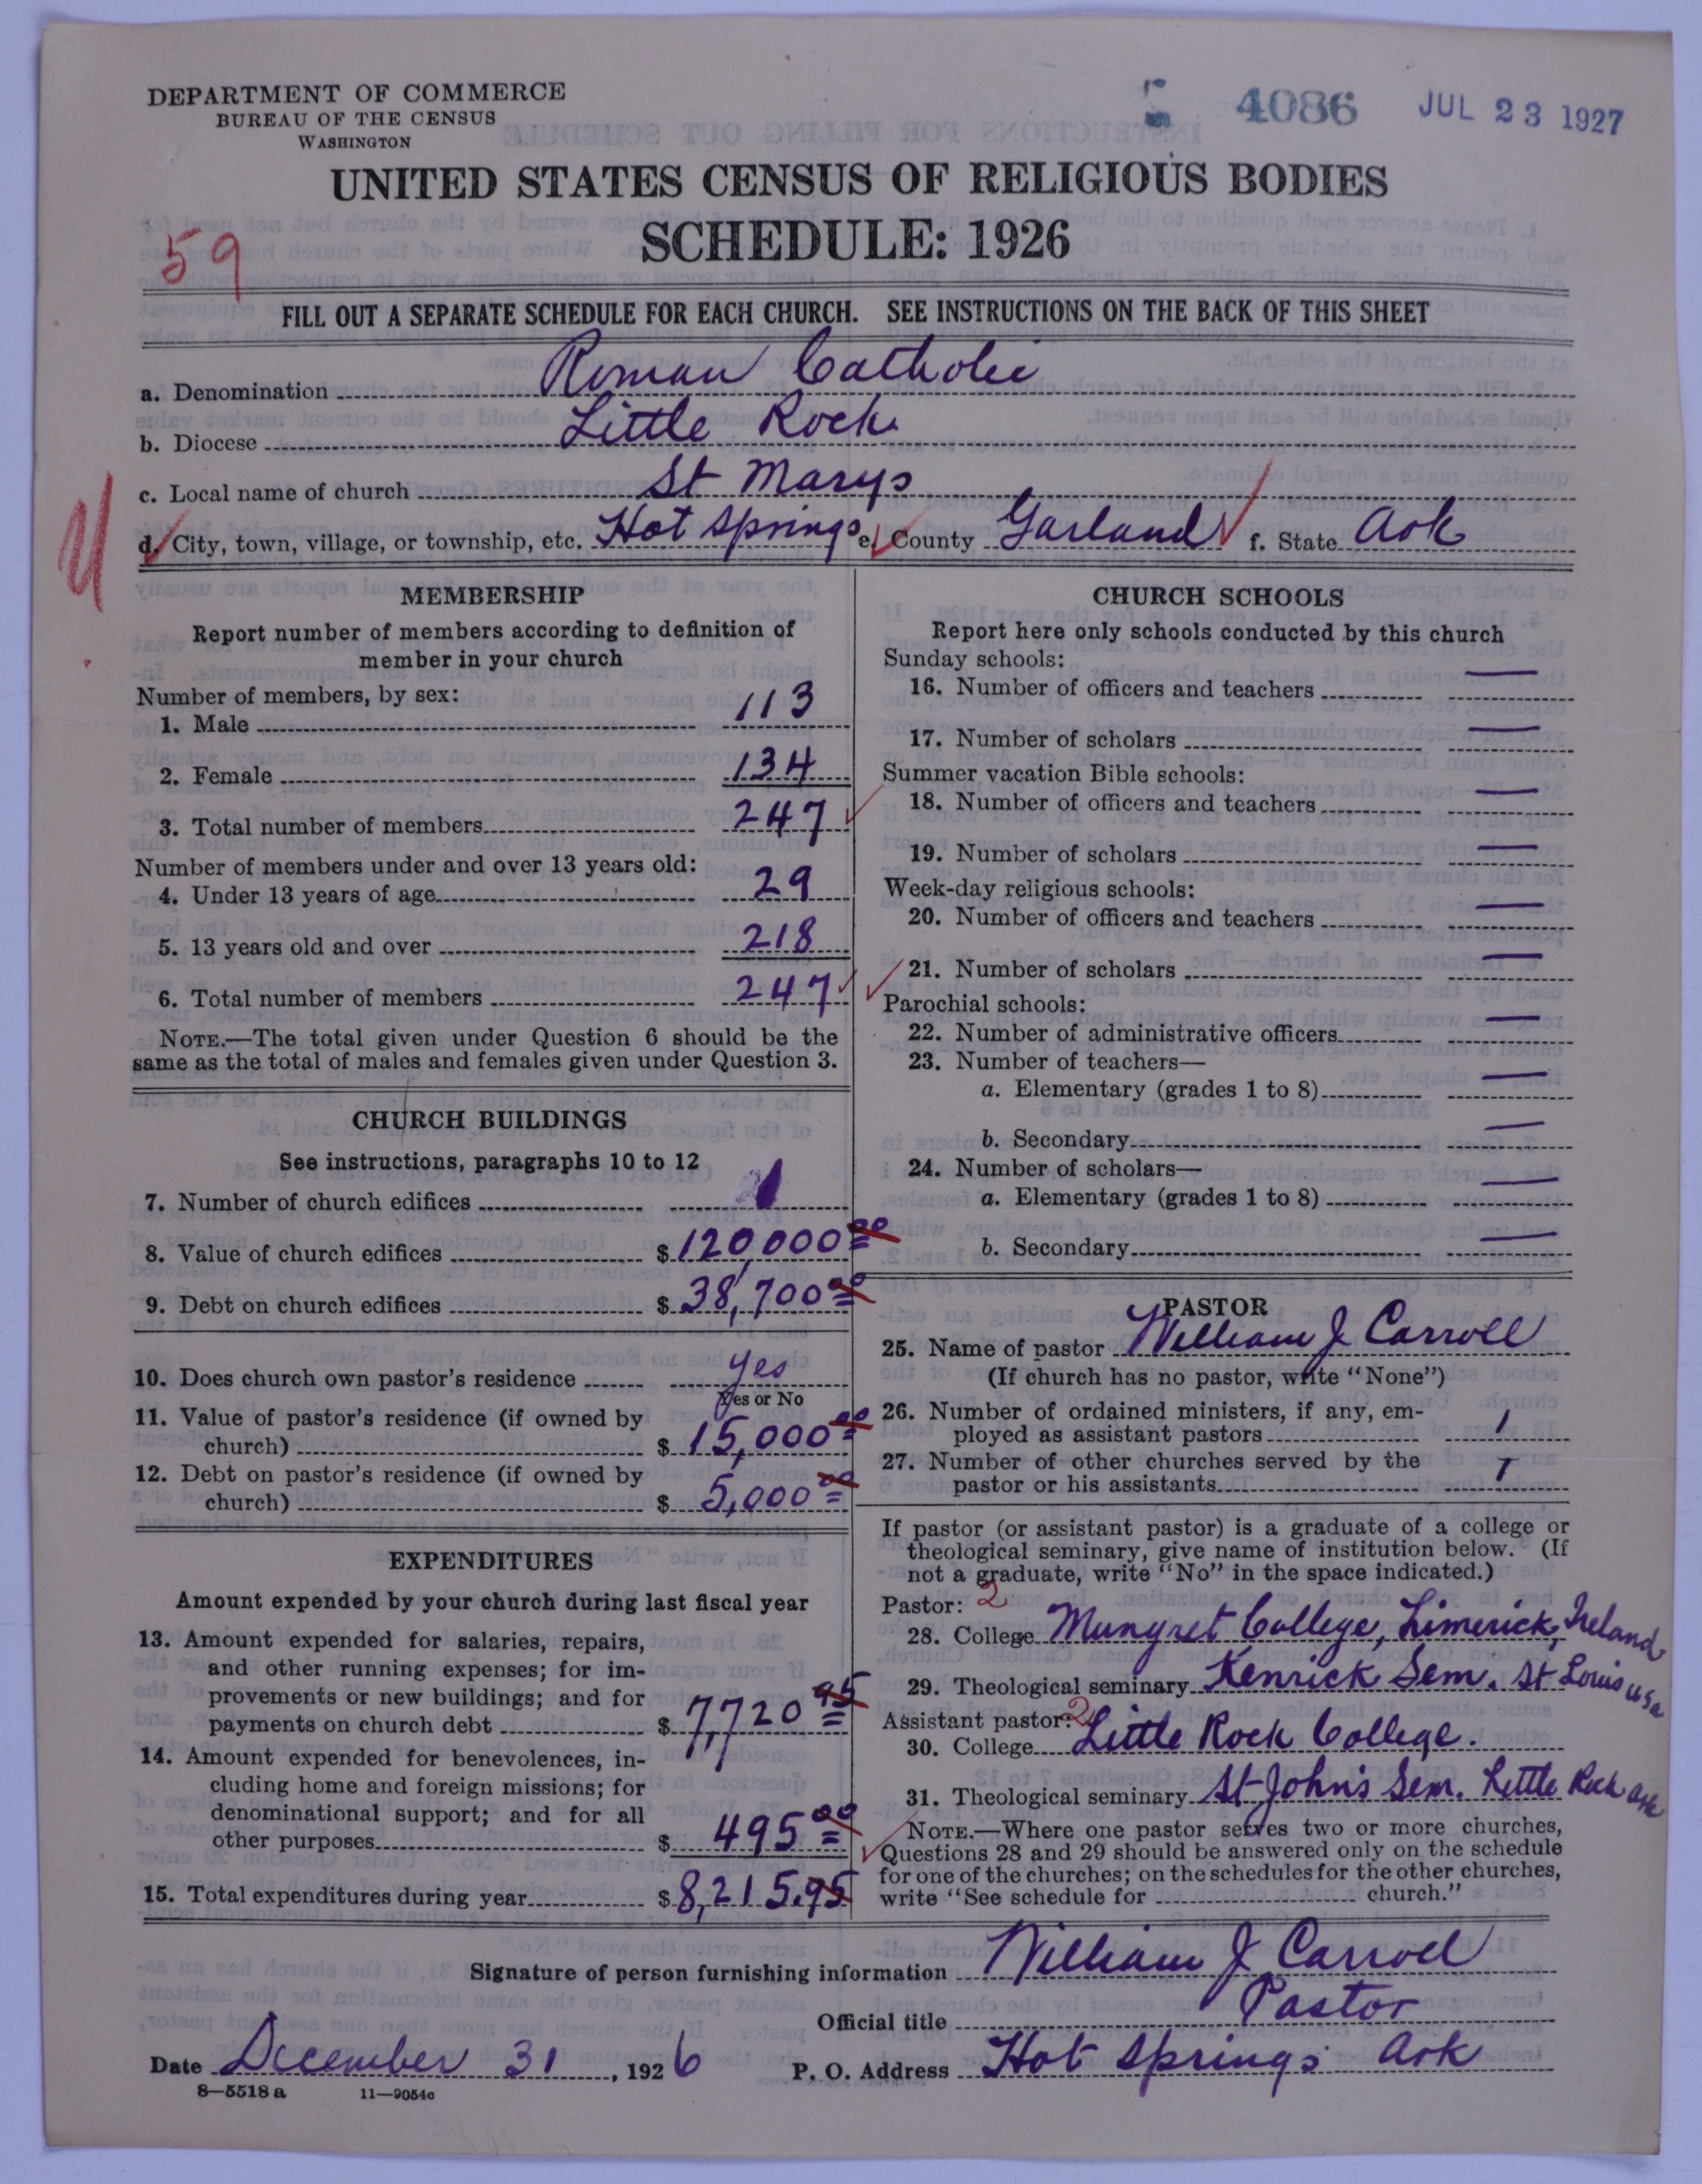 DEPARTMENT OF COMMERCE
BUREAU OF THE CENSUS
WASHINGTON
4086 JUL 23 1927
UNITED STATES CENSUS OF RELIGIOUS BODIES
SCHEDULE: 1926
59
FILL OUT A SEPARATE SCHEDULE FOR EACH CHURCH. SEE INSTRUCTIONS ON THE BACK OF THIS SHEET
a. Denomination Roman Catholic
b. Diocese Little Rock
c. Local name of church St Marys
d. City, town, village, or township, etc. Hot Springs e. County Garland f. State Ark
MEMBERSHIP
Report number of members according to definition of
member in your church
Number of members, by sex:
1. Male 113
2. Female 134
3. Total number of members 247
Number of members under and over 13 years old:
4. Under 13 years of age 29
5. 13 years old and over 218
6. Total number of members 247
NOTE.—The total given under Question 6 should be the
same as the total of males and females given under Question 3.
CHURCH BUILDINGS
See instructions, paragraphs 10 to 12
7. Number of church edifices 1
8. Value of church edifices $ 120,000 00
9. Debt on church edifices $ 38,700 00
10. Does church own pastor's residence yes
Yes or No
11. Value of pastor's residence (if owned by
church) $ 15,000 00
12. Debt on pastor's residence (if owned by
church) $ 5,000 00
EXPENDITURES
Amount expended by your church during last fiscal year
13. Amount expended for salaries, repairs,
and other running expenses; for im-
provements or new buildings; and for
payments on church debt $ 7,720 95
14. Amount expended for benevolences, in-
cluding home and foreign missions; for
denominational support; and for all
other purposes $ 495 00
15. Total expenditures during year $ 8,215.95
CHURCH SCHOOLS
Report here only schools conducted by this church
Sunday schools:
16. Number of officers and teachers —
17. Number of scholars —
Summer vacation Bible schools:
18. Number of officers and teachers —
19. Number of scholars —
Week-day religious schools:
20. Number of officers and teachers —
21. Number of scholars —
Parochial schools:
22. Number of administrative officers —
23. Number of teachers—
a. Elementary (grades 1 to 8) —
b. Secondary —
24. Number of scholars—
a. Elementary (grades 1 to 8) —
b. Secondary —
PASTOR
25. Name of pastor William J Carroll
(If church has no pastor, write "None")
26. Number of ordained ministers, if any, em-
ployed as assistant pastors 1
27. Number of other churches served by the
pastor or his assistants 1
If pastor (or assistant pastor) is a graduate of a college or
theological seminary, give name of institution below. (If
not a graduate, write "No" in the space indicated.)
Pastor: 2
28. College Mungret College, Limerick, Ireland
29. Theological seminary Kenrick Sem. St Louis USA
Assistant pastor: 2
30. College Little Rock College.
31. Theological seminary St John's Sem. Little Rock Ark
NOTE.—Where one pastor serves two or more churches,
Questions 28 and 29 should be answered only on the schedule
for one of the churches; on the schedules for the other churches,
write "See schedule for church."
Signature of person furnishing information William J Carroll
Official title Pastor
Date December 31, 1926 P. O. Address Hot Springs Ark
8—5518 a 11—9054c